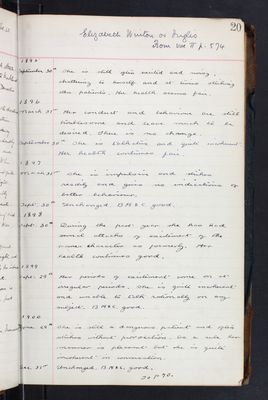 20
Elizabeth Winton or Inglis
From vol II p. 574
1895
September 30th She is still often excited and noisy,
chattering to herself and at times striking
other patients. Her health seems fair.
1896
March 31st Her conduct and behaviour are still
troublesome and leave much to be
desired. There is no change.
September 30th She is talkative and quite incoherent.
Her health continues fair.
1897
March 31st She is impulsive and strikes
readily and gives no indications of
better behaviour.
Sept. 30th Unchanged. B.H. & C. good.
1898
Sept. 30th During the past year she has had
several attacks of excitement of the
same character as formerly. Her
health continues good.
1899
Sept. 29th Her periods of excitement come on at
irregular periods. She is quite incoherent
and unable to talk rationally on any
subject. B.H. & C. good.
1900
June 29th She is still a dangerous patient and often
strikes without provocation. As a rule her
manner is pleasant but she is quite
incoherent in conversation.
Dec. 31st Unchanged. B.H. & C. good.
To p. 70.